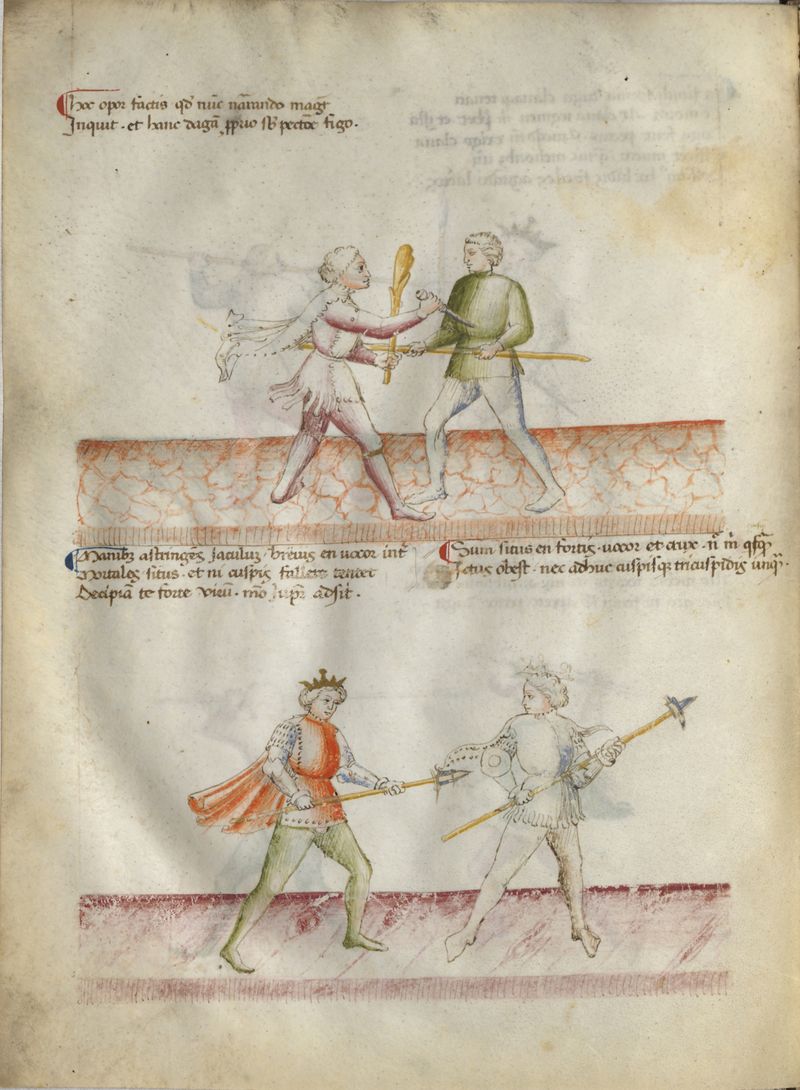 hoc opor factis qd' nūc narrando magr̄
Inquit · et hanc dagā p̱prio sb' pectoe figo ·
Manibz astringēs Jaculuz brevius en vocor int̄
Mortales situs · et ni cuspis fallere temtet
Decipiā te forte virū · mō Jupr̄ adsit ·
Sum situs en fortis · vocor et crux · n̄ m̄ qsqꝫ
Ictus obest · nec adhuc cuspisqꝫ tricuspidis unqꝫ ·